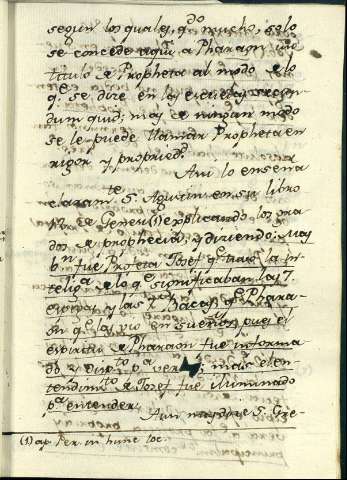 segun los quales, q.do mucho, solo
se concede aqui a Pharaon un
titulo de Propheta al modo de lo
q.e se dize en las escuelas secun-
dum quid; mas de ningun modo
se le puede llamar Propheta en
rigor y propried.d
Assi lo enseña
claram.te S. Agustin en su libro
12. de Genesi (1) explicando los gra-
dos de prophecia, y diziendo; Mas
b.n fue Profeta Josef q.e tuvo la in-
telig.a de lo q.e significaban las 7.
espigas, y las 7. Bacas, q.e Phara-
on q.e las vio en sueños, pues el
espiritu de Pharaon fue informa-
do p.a ver; mas el en-
tendim.to de Josef fue iluminado
p.a entender. Aun mas dize S. Gre-
(1) ap. Per. in hunc loc.